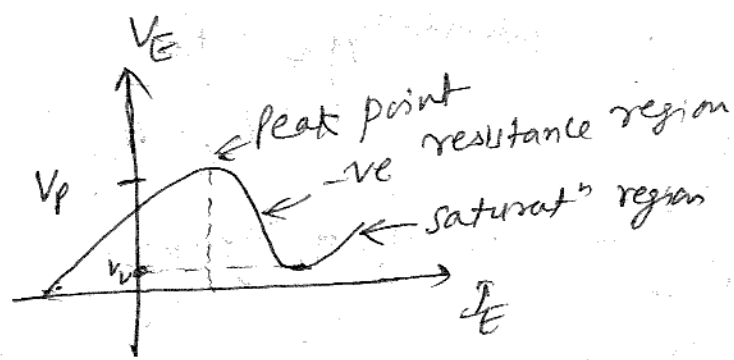 V_E
Peak point
-ve resistance region
V_P
saturatⁿ region
V_V
I_E